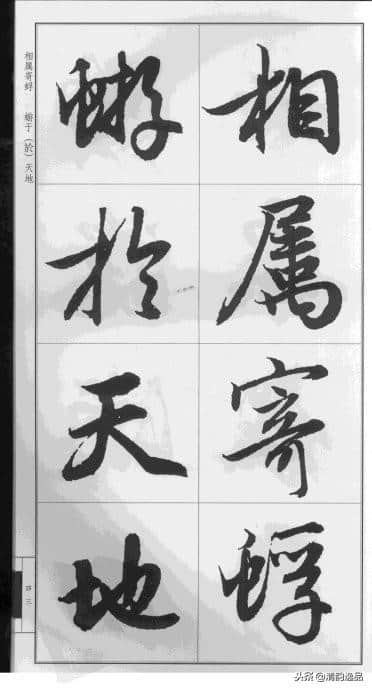 相属寄蜉
蝣於天地
相属寄蜉　蝣于（於）天地
四三
头条@清韵逸品